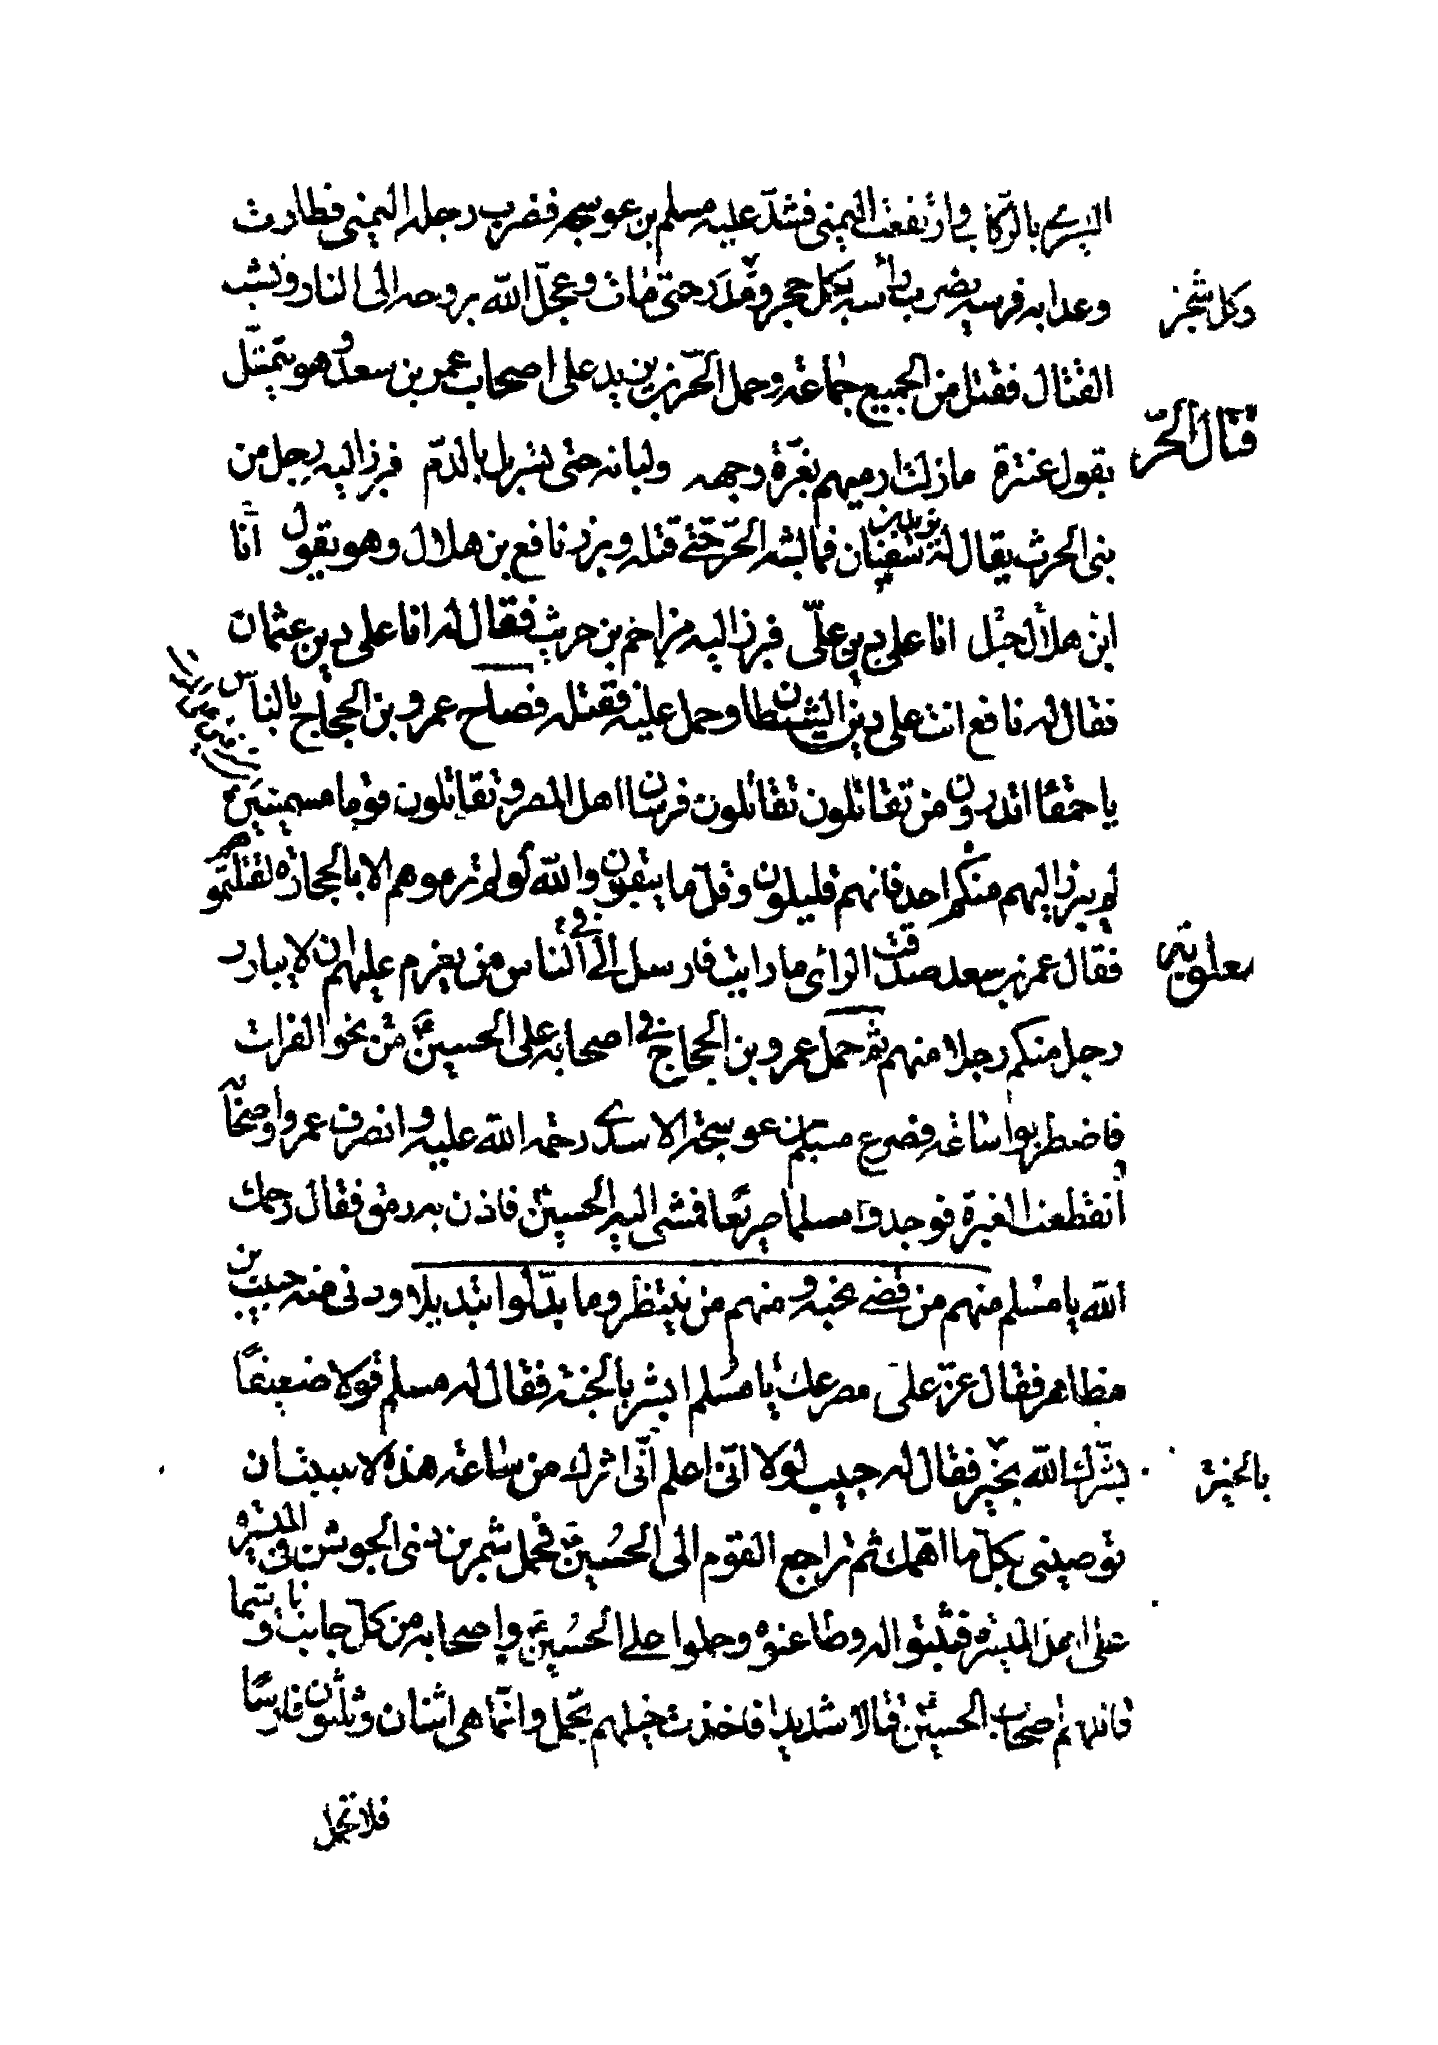 اليسرى بالركاب وارتفعت اليمنى فشدّ عليه مسلم بن عوسجه فضرب رجله اليمنى فطارت
وعدا به فرسه يضرب رأسه بكل حجر ومدر حتى مات وعجّل الله بروحه الى النار ونشب
وكل شجر
القتال فقتل من الجميع جماعة وحمل الحّر بن يزيد على اصحاب عمر بن سعد وهو يتمثّل
قتال الحّر
بقول عنترة ما زلت ارميهم بغّرة وجهه ولبانه حتى تسربل بالدّم فبرز اليه رجل من
بنى الحرث يقال له سفيان فما لبثه الحّر حتّى قتله وبرز نافع بن هلال وهو يقول انا
يزيد بن
ابن هلال البجلى انا على دين علىّ فبرز اليه مزاحم بن حريث فقال له انا على دين عثمان
فقال له نافع انت على دين الشيطان وحمل عليه فقتله فصاح عمرو بن الحجاج بالناس
يا حمقا اتدرون من تقاتلون تقاتلون فرسان اهل المصر وتقاتلون قوما مستميتين
لم يبرز اليهم منكم احد فانهم قليلون وقلّ ما يبقون والله لو لم ترموهم الا بالحجارة لقتلتموهم
فقال عمر بن سعد صدقت الرأى ما رأيت فارسل الى فى الناس من يعزم عليهم ان لا يبارز
رجل منكم رجلا منهم ثم حمل عمرو بن الحجاج فى اصحابه على الحسين من نحو الفرات
فاضطربوا ساعة فصرع مسلم بن عوسجة الاسدى رحمه الله عليه وانصرف عمرو واصحابه
انقطعت الغبرة فوجدوا مسلما صريعًا فمشى اليه الحسين فاذن به رمق فقال رحمك
الله يا مسلم منهم من قضى نحبه ومنهم من ينتظر وما بدّلوا تبديلا ودنى منه حبيب بن
مظاهر فقال عزّ على مصرعك يا مسلم ابشر بالجنة فقال له مسلم قولا ضعيفًا
بشّرك الله بخير فقال له حبيب لولا انّى اعلم انّى اثرك من ساعة هذه لاحببت ان
بالجنة
توصينى بكلّ ما اهمّك ثم تراجع القوم الى الحُسين فحمل شمر بن ذى الجوشن فى الميسرة
على اهل الميسرة فثبتوا له وطاعنوه وحملوا على الحُسين واصحابه من كل جانب
قاتلهم اصحاب الحسين قتالا شديدا فاخذت خيلهم تحمل وانّما هى اثنان وثلثون فارسًا
فلا تحمل